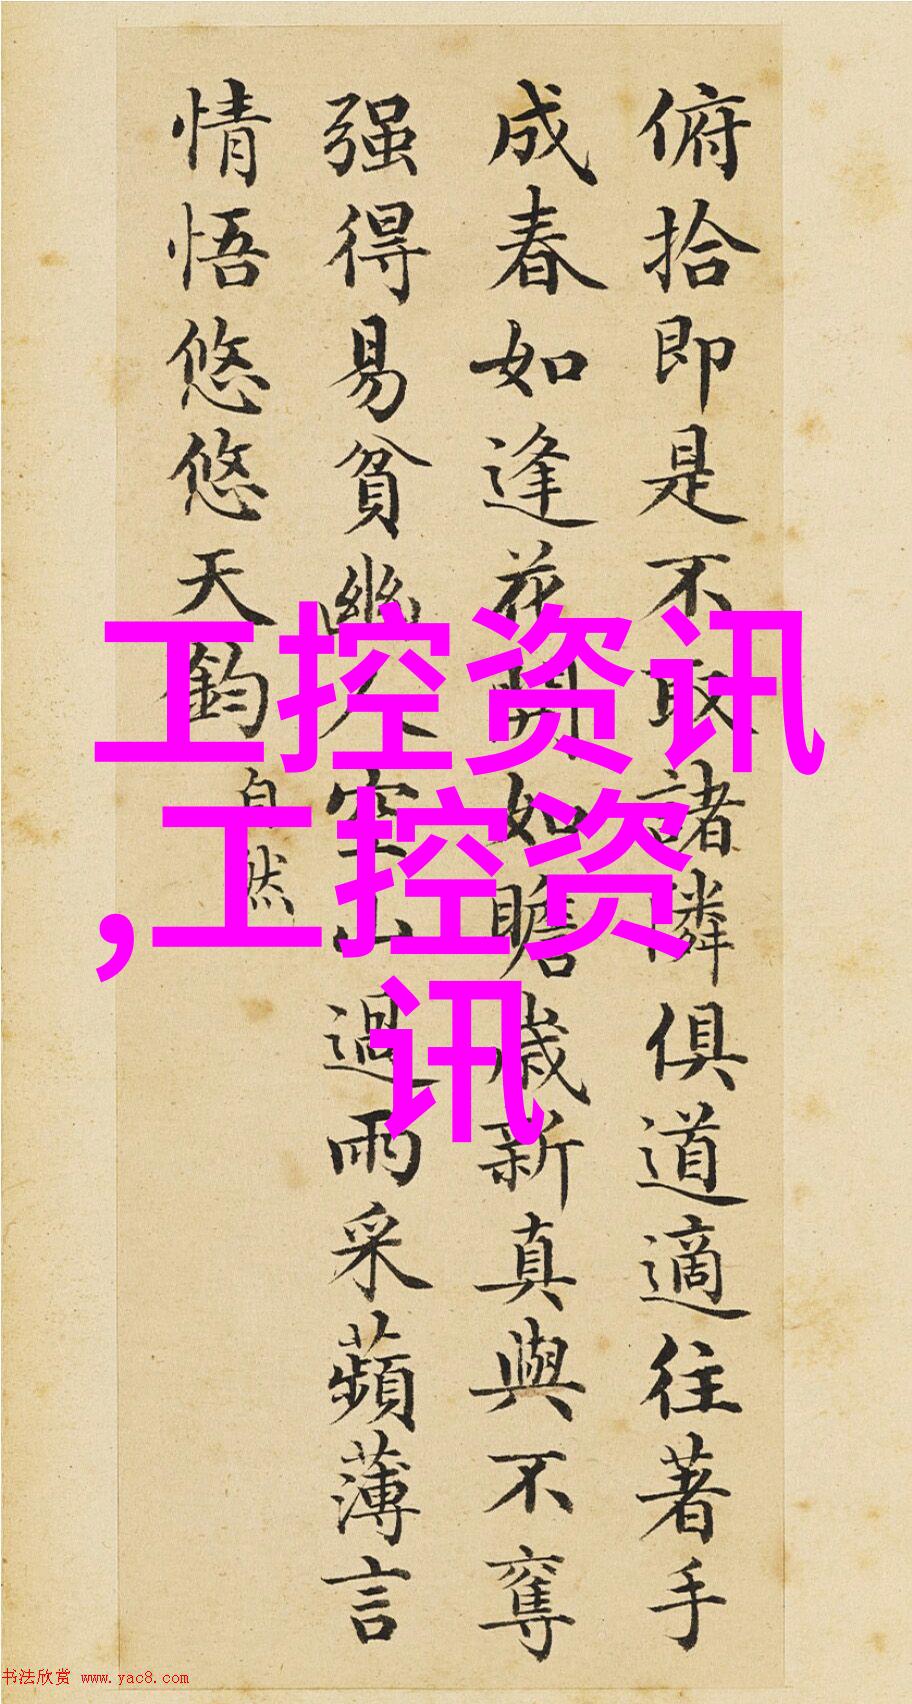 俯拾即是不取諸隣俱道適往著手
成春如逢花開如瞻歳新真與不奪
强得易貧幽人空山過雨采蘋薄言
情悟悠悠天鈞
自然
工控资讯
,工控资
讯
书法欣赏 www.yac8.com